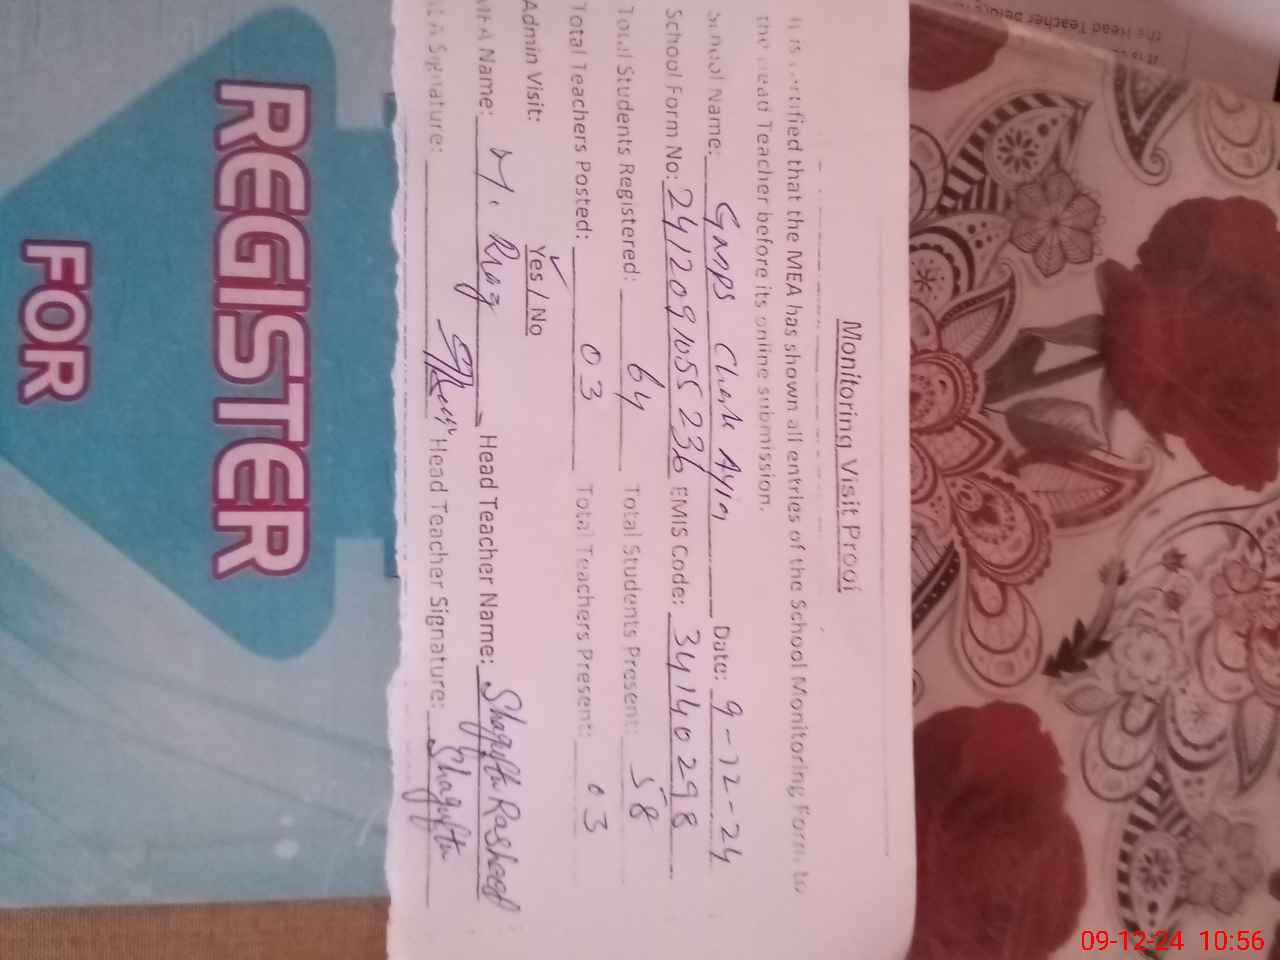 Monitoring Visit Proof
It is certified that the MEA has shown all entries of the School Monitoring Form to
the Head Teacher before its online submission.
School Name: GMPS Chak Ayia Date: 9-12-24
School Form No: 2412091055236 EMIS Code: 34140298
Total Students Registered: 64 Total Students Present: 58
Total Teachers Posted: 03 Total Teachers Present: 03
Admin Visit: Yes / No
MEA Name: M. Riaz Head Teacher Name: Shagufta Rasheed
MEA Signature: Head Teacher Signature: Shagufta
REGISTER
FOR
the Head Teacher before
09-12-24 10:56